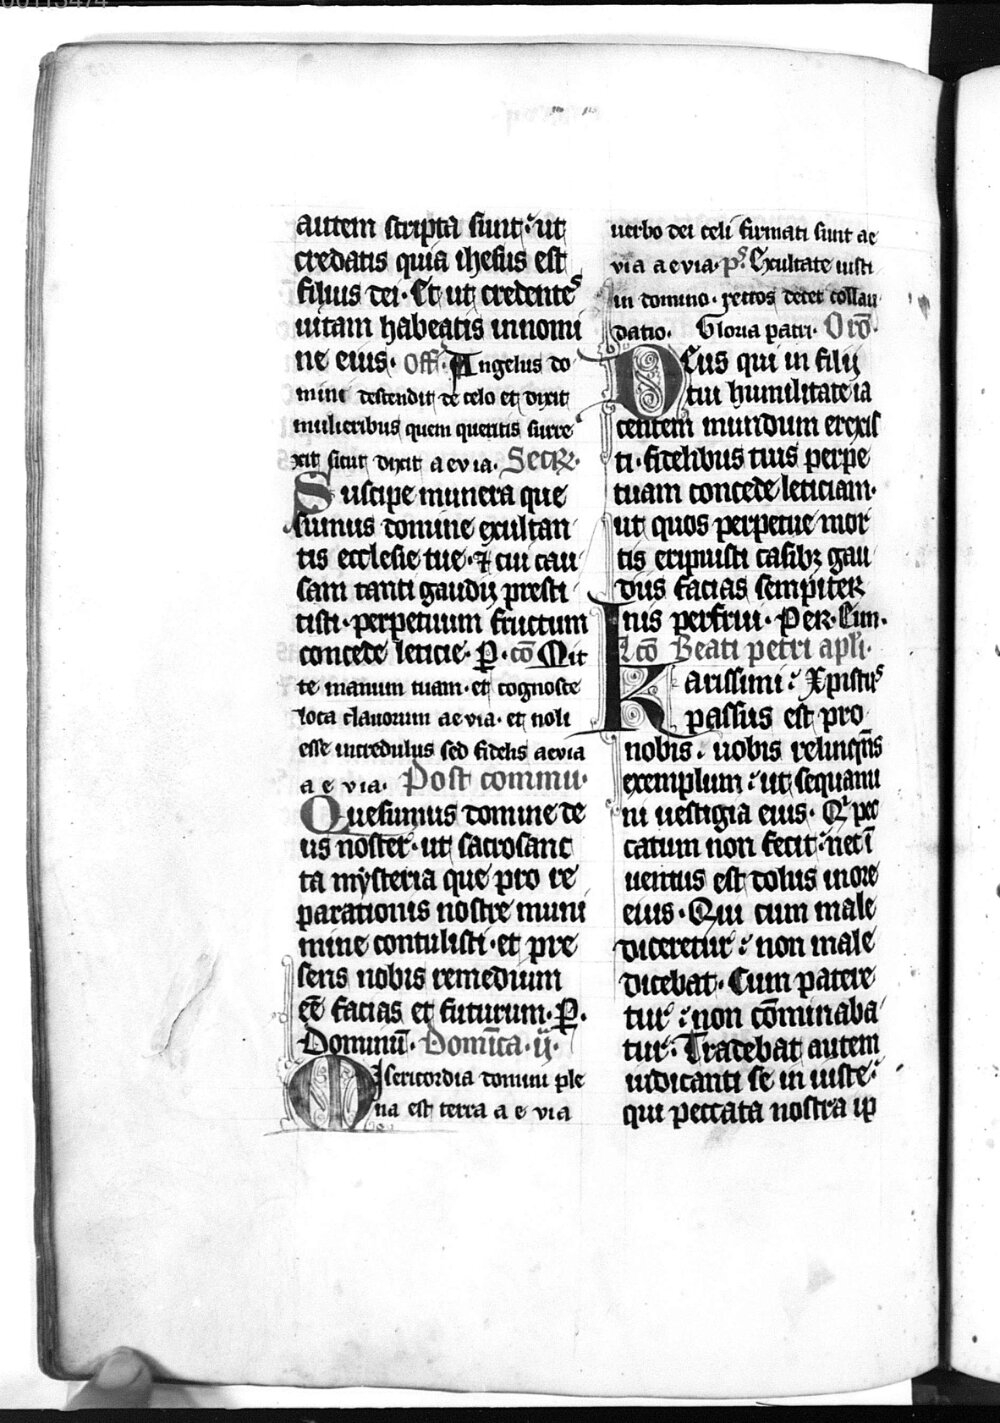 autem scripta sunt· ut
credatis quia ihesus est
filius dei· Et ut credentes
uitam habeatis innomi
ne eius· Off· Angelus do
mini descendit de celo et dixit
mulieribus quem queritis surre
xit sicut dixit a e v i a· Secr·
Suscipe munera que
sumus domine exultan
tis ecclesie tue· ⁊ cui cau
sam tanti gaudij presti
tisti· perpetuum fructum
concede leticie· P· cō Mit
te manum tuam· et cognosce
loca clauorum aevia· et noli
esse incredulus sed fidelis aevia
a e v i a· Post commu·
Quesumus domine de
us noster· ut sacrosanc
ta mysteria que pro re
parationis nostre muni
mine contulisti· et pre
sens nobis remedium
eē facias et futurum· P·
Dominū· Domīca· ij·
Misericordia domini ple
na est terra a e v i a
uerbo dei celi firmati sunt ae
via aevia· ps̄ Exultate iusti
in domino· rectos decet collau
datio· Gloria patri· Orō·
Deus qui in filij
tui humilitate ia
centem mundum erexis
ti· fidelibus tuis perpe
tuam concede leticiam·
ut quos perpetue mor
tis eripuisti casibꝫ gau
diis facias sempiter
nis perfrui· Per· Eun·
Lcō Beati petri apl̄i·
Karissimi· Xpistus
passus est pro
nobis· uobis relinqn̄s
exemplum· ut sequami
ni uestigia eius· Qi pec
catum non fecit· nec ī
uentus est dolus inore
eius· Qui cum male
diceretur· non male
dicebat· Cum patere
tur· non cōminaba
tur· Tradebat autem
iudicanti se in iuste·
qui peccata nostra ip